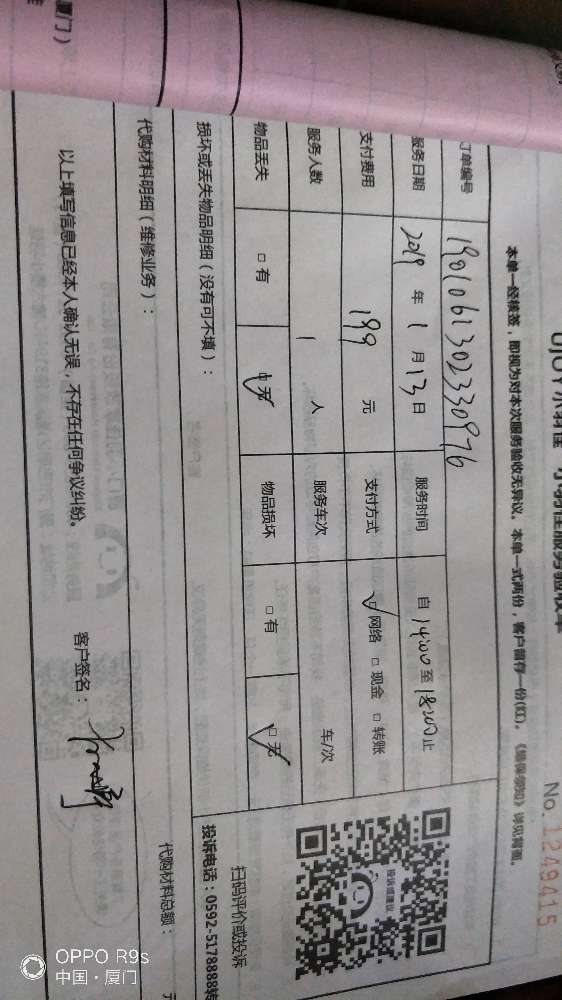 厦门）
No 1249415
本单一经接签，即视为对本次服务验收无异议。本单一式两份，客户留存一份(红)。《错保须知》详见背面。
订单编号 1901061302330976
服务日期 2019 年 1 月 13 日 服务时间 自 14:00 至 18:00 止
支付费用 199 元 支付方式 ☑ 网络 □ 现金 □ 转账
服务人数 1 人 服务车次 车/次
物品丢失 □ 有 ☑ 无 物品损坏 □ 有 ☑ 无
投诉或建议
扫码评价或投诉
投诉电话：0592-5178888转
损坏或丢失物品明细（没有可不填）：
代购材料明细（维修业务）：
代购材料总额：
以上填写信息已经本人确认无误，不存在任何争议纠纷。
客户签名：
OPPO R9s
中国·厦门